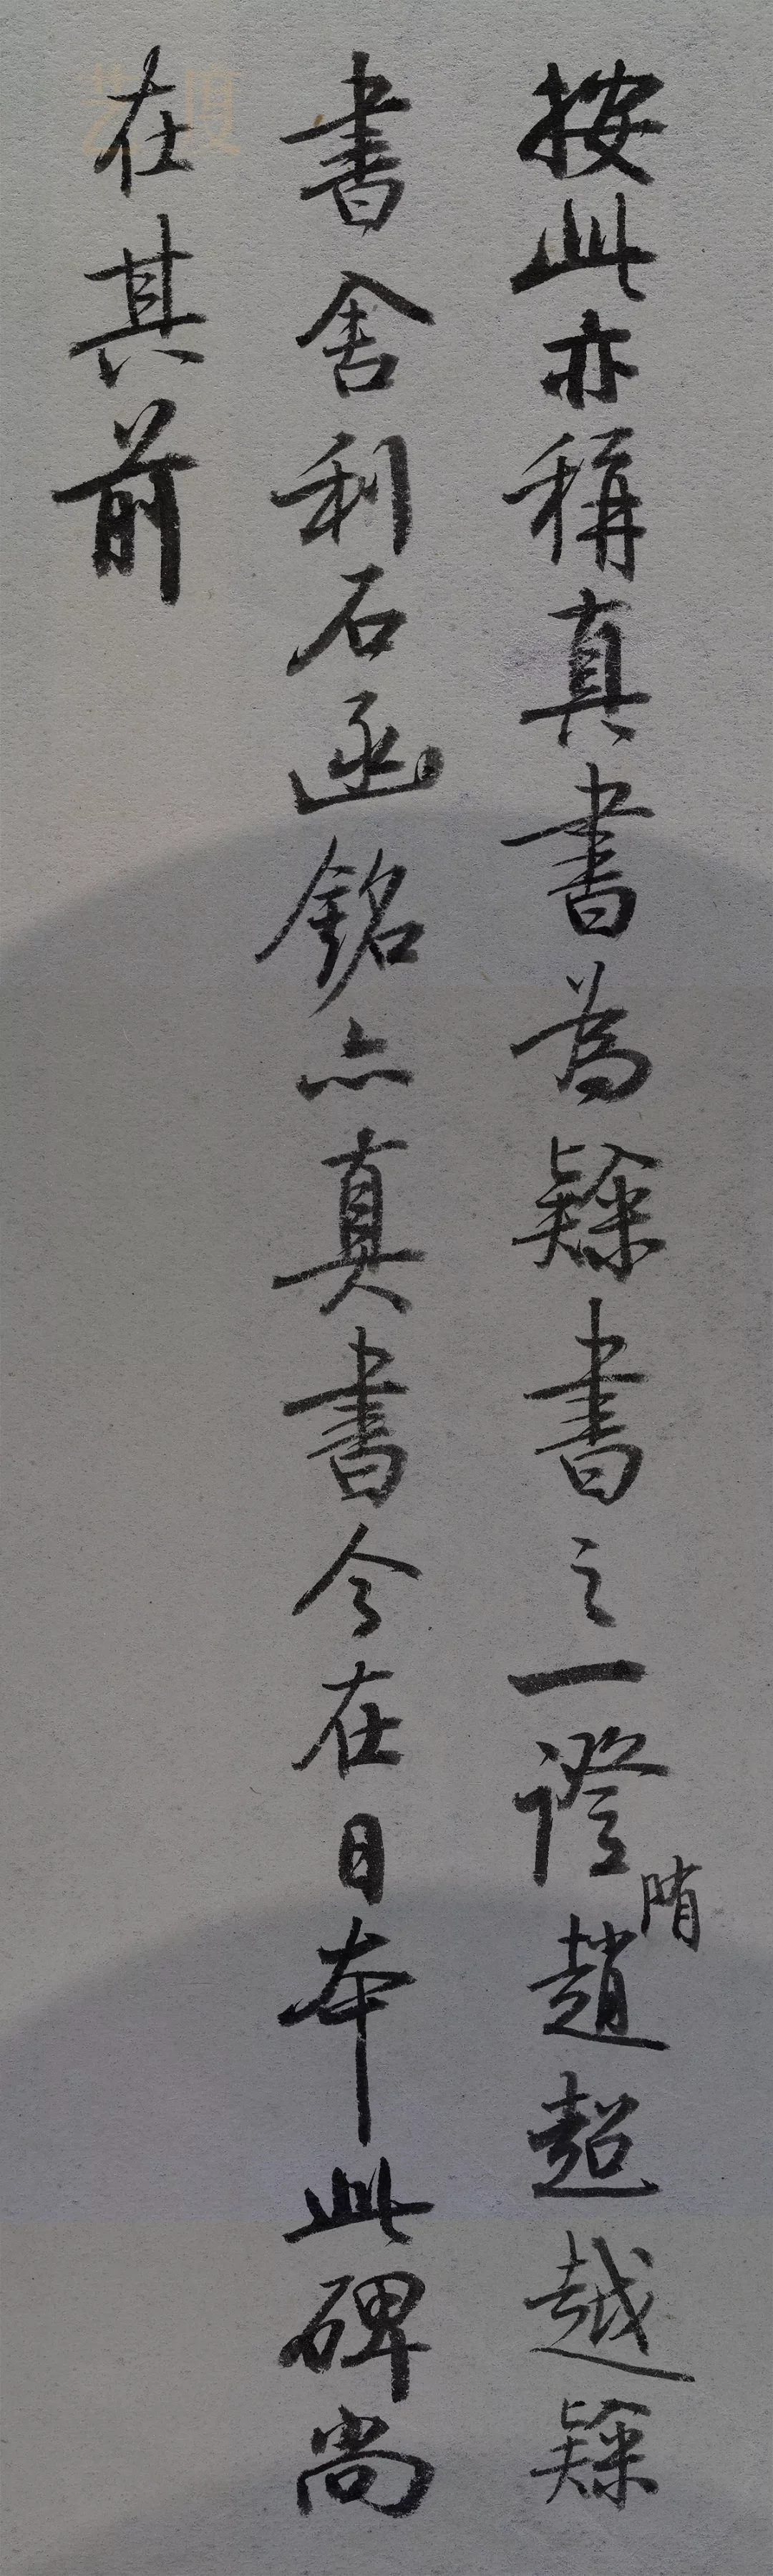 按此亦稱真書為隸書之一證隋趙超越隸
書舍利石函銘亦真書今在日本此碑尚
在其前